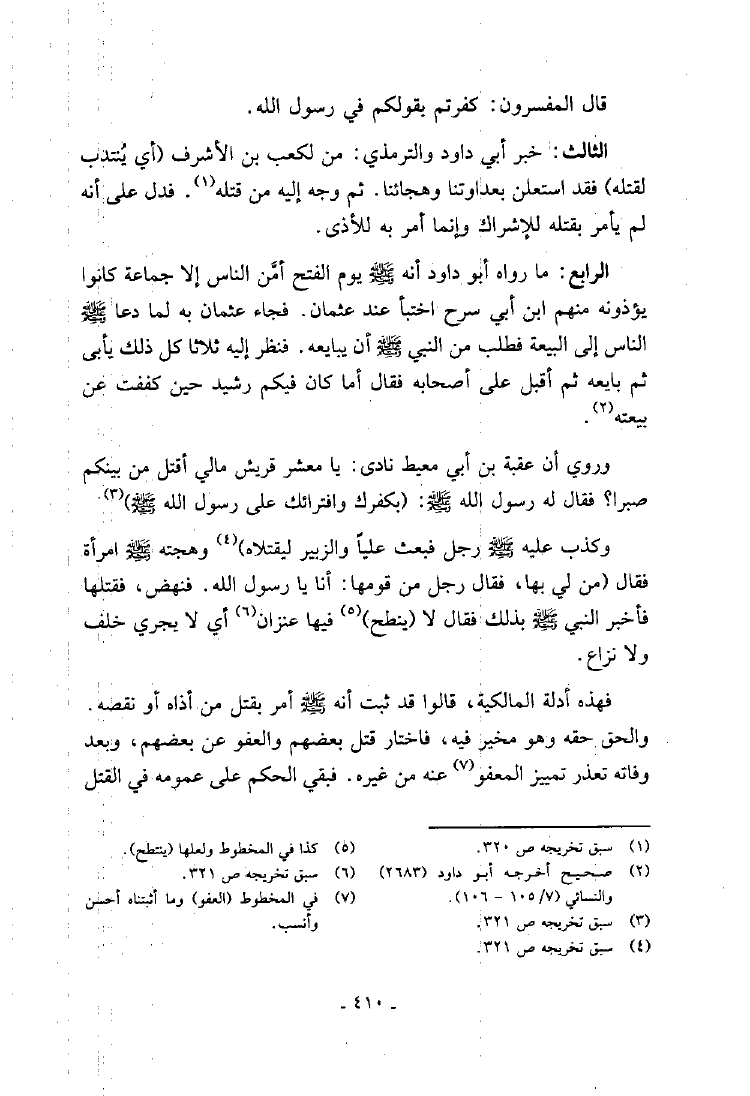 قال المفسرون: كفرتم بقولكم في رسول الله.
الثالث: خبر أبي داود والترمذي: من لكعب بن الأشرف (أي يُنتدب
لقتله) فقد استعلن بعداوتنا وهجائنا. ثم وجه إليه من قتله(١). فدل على أنه
لم يأمر بقتله للإشراك وإنما أمر به للأذى.
الرابع: ما رواه أبو داود أنه ﷺ يوم الفتح أمَّن الناس إلا جماعة كانوا
يؤذونه منهم ابن أبي سرح اختبأ عند عثمان. فجاء عثمان به لما دعا ﷺ
الناس إلى البيعة فطلب من النبي ﷺ أن يبايعه. فنظر إليه ثلاثا كل ذلك يأبى
ثم بايعه ثم أقبل على أصحابه فقال أما كان فيكم رشيد حين كففت عن
بيعته(٢).
وروي أن عقبة بن أبي معيط نادى: يا معشر قريش مالي أقتل من بينكم
صبرا؟ فقال له رسول الله ﷺ: (بكفرك وافترائك على رسول الله ﷺ)(٣).
وكذب عليه ﷺ رجل فبعث علياً والزبير ليقتلاه)(٤) وهجته ﷺ امرأة
فقال (من لي بها، فقال رجل من قومها: أنا يا رسول الله. فنهض، فقتلها
فأخبر النبي ﷺ بذلك فقال لا (ينطح)(٥) فيها عنزان(٦) أي لا يجري خلف
ولا نزاع.
فهذه أدلة المالكية، قالوا قد ثبت أنه ﷺ أمر بقتل من أذاه أو نقصه.
والحق حقه وهو مخير فيه، فاختار قتل بعضهم والعفو عن بعضهم، وبعد
وفاته تعذر تمييز المعفو(٧) عنه من غيره. فبقي الحكم على عمومه في القتل
(١) سبق تخريجه ص ٣٢٠.
(٢) صحيح أخرجه أبو داود (٢٦٨٣)
والنسائي (٧/ ١٠٥ - ١٠٦).
(٣) سبق تخريجه ص ٣٢١.
(٤) سبق تخريجه ص ٣٢١.
(٥) كذا في المخطوط ولعلها (ينتطح).
(٦) سبق تخريجه ص ٣٢١.
(٧) في المخطوط (العفو) وما أثبتناه أحسن
وأنسب.
- ٤١٠ -